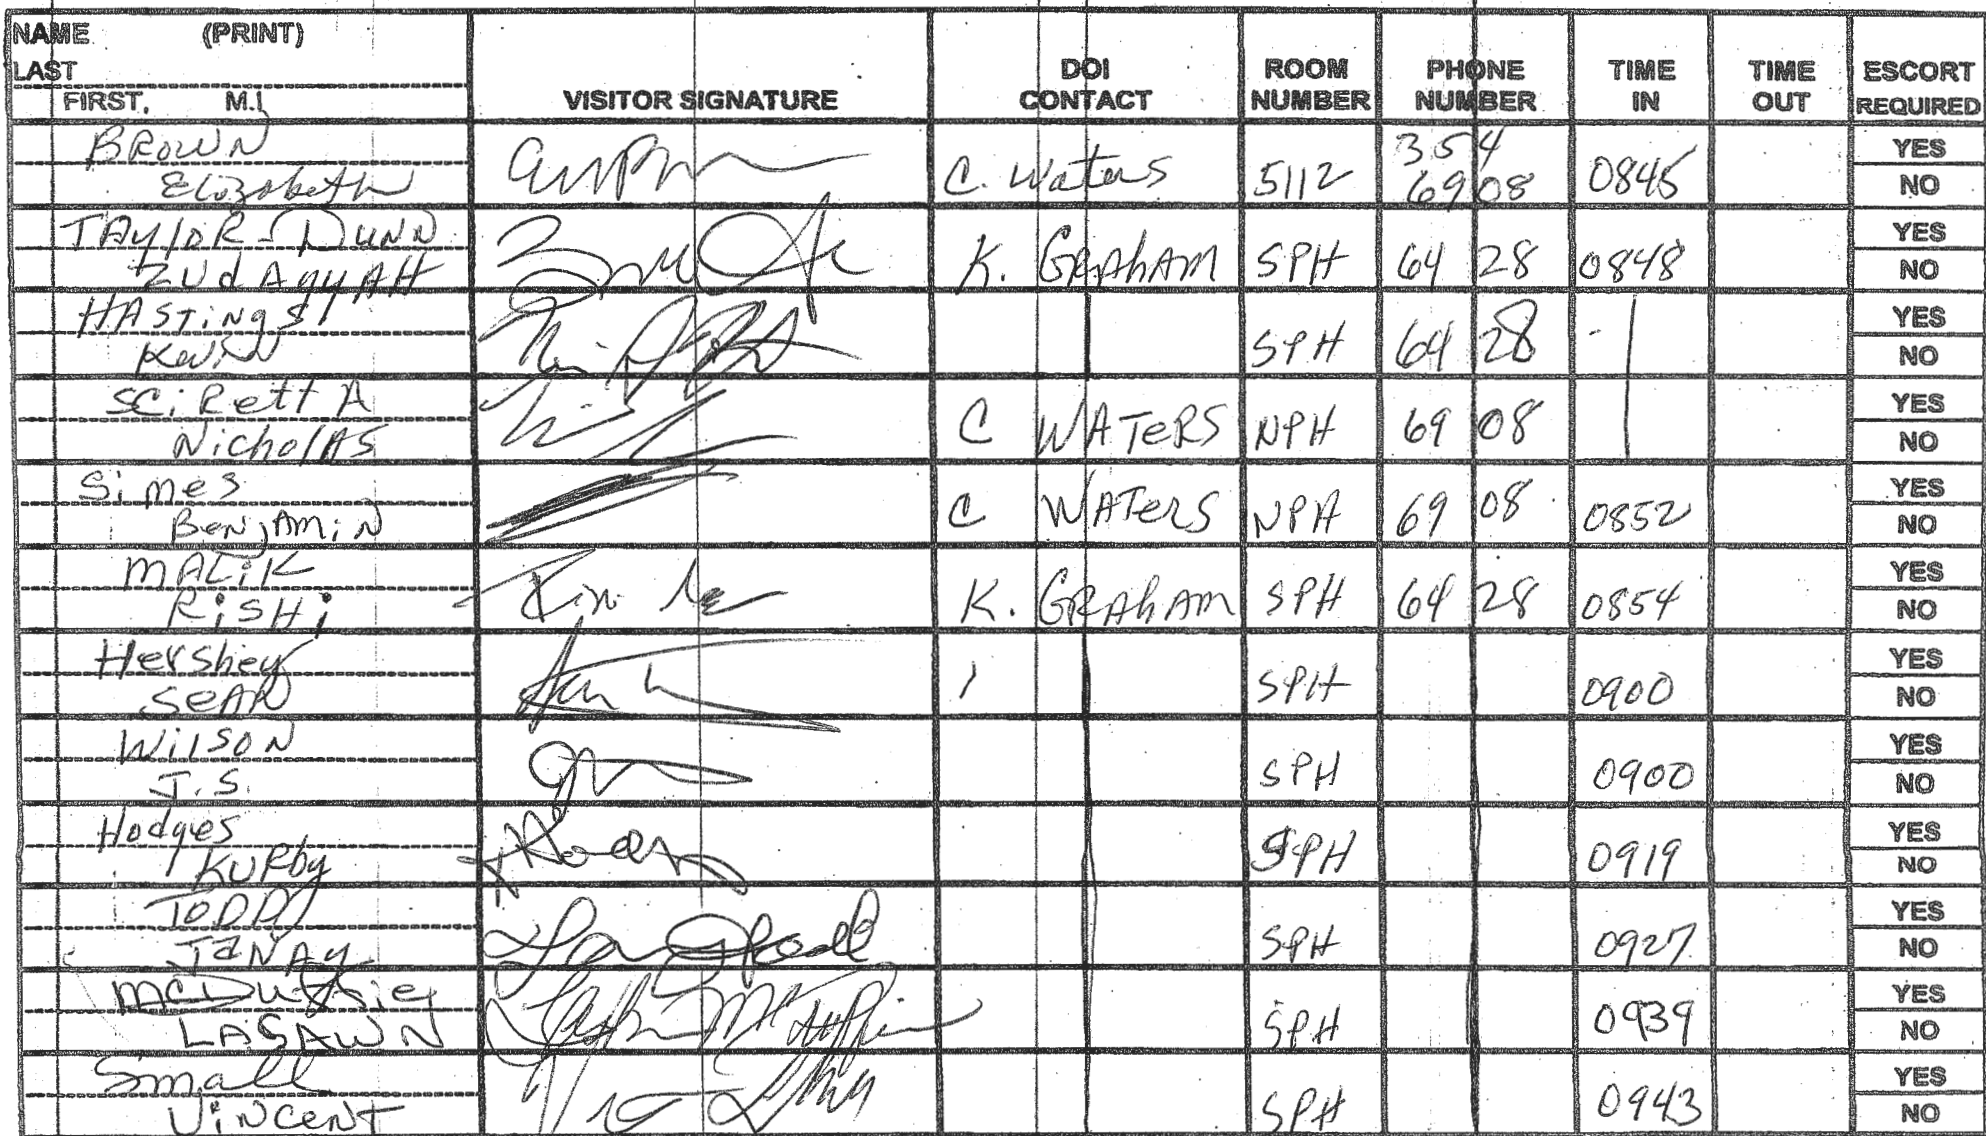 NAME (PRINT)
LAST
FIRST, M.I.
VISITOR SIGNATURE
DOI CONTACT
ROOM NUMBER
PHONE NUMBER
TIME IN
TIME OUT
ESCORT REQUIRED
BROWN
Elizabeth C. Waters 5112 354 6908 0845 YES NO
TAYlOR-DUNN
ZUdAqyAH K. GRAhAM SPH 6428 0848 YES NO
HASTiNgS
KeviN SPH 6428 YES NO
SCiRettA
NicholAS C WATeRS NPH 6908 YES NO
Simes
BeNjAMiN C WATeRS NPH 6908 0852 YES NO
MALiK
RiSHi K. GRAhAM SPH 6428 0854 YES NO
Hershey
SEAN SPH 0900 YES NO
WilSON
J.S. SPH 0900 YES NO
Hodges
KURby SPH 0919 YES NO
TODD
JaNAy SPH 0927 YES NO
McDuffie
LASAWN SPH 0939 YES NO
Small
ViNCeNT SPH 0943 YES NO